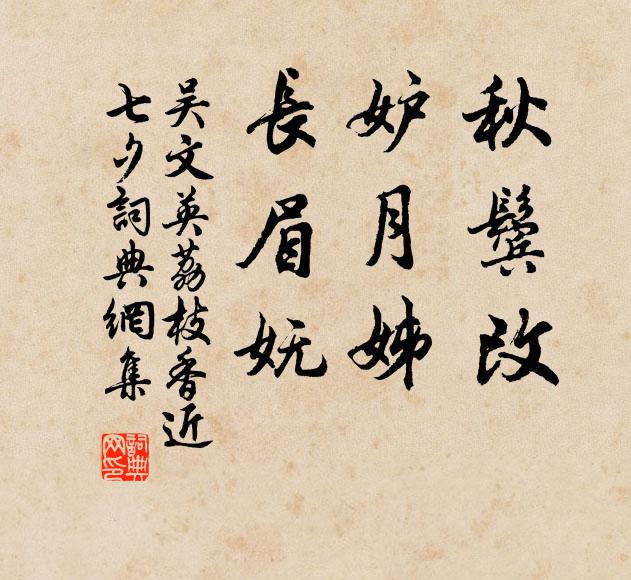 秋鬓改
妒月姊
長眉妩
吴文英荔枝香近
七夕詞典網集
詞典网印